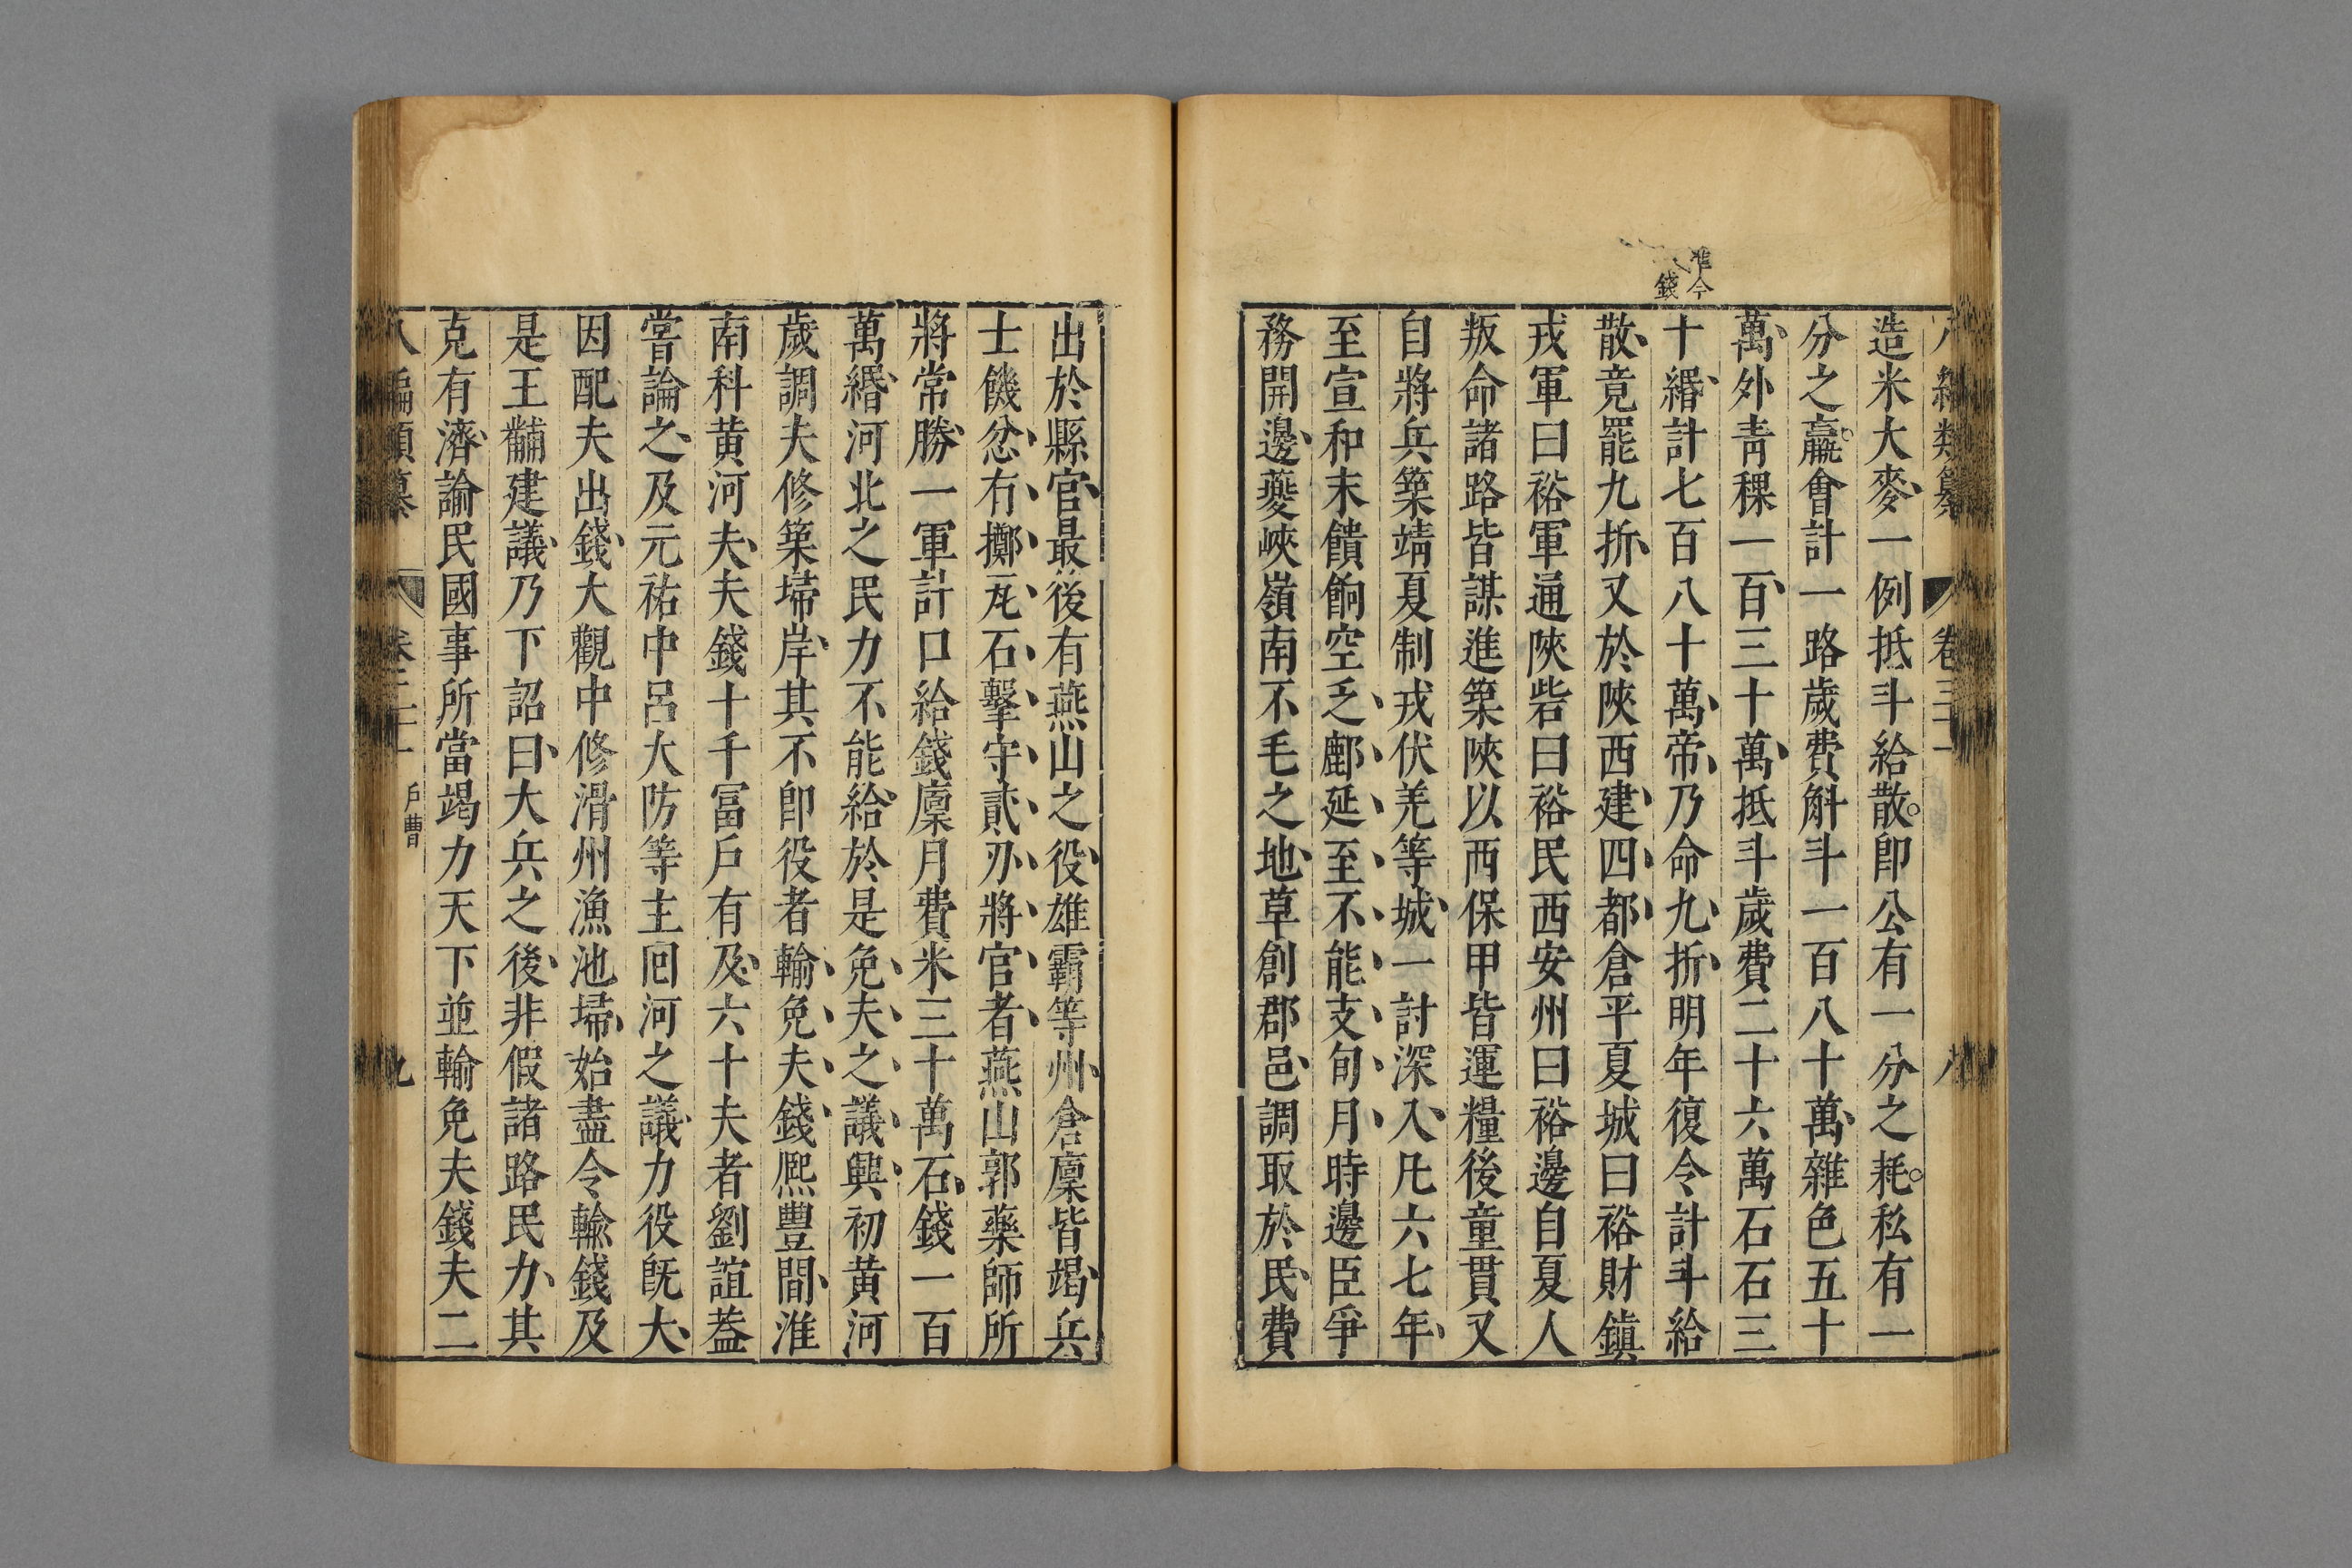 八編類纂 卷三十一 八
造米大麥一例抵斗給散卽公有一分之耗私有一
分之羸會計一路歲費斛斗一百八十萬雜色五十
萬外靑稞一百三十萬抵斗歲費二十六萬石石三
十緡計七百八十萬帝乃命九折明年復令計斗給
散竟罷九折又於陝西建四都倉平夏城曰裕財鎭
戎軍曰裕軍通陝砦曰裕民西安州曰裕邊自夏人
叛命諸路皆謀進築陝以西保甲皆運糧後童貫又
自將兵築靖夏制戎伏羌等城一討深入凡六七年
至宣和末饋餉空乏鄜延至不能支旬月時邊臣爭
務開邊夔峽嶺南不毛之地草創郡邑調取於民費
出於縣官最後有燕山之役雄霸等州倉廩皆竭兵
士饑忿有擲瓦石擊守貳刅將官者燕山郭藥師所
將常勝一軍計口給錢廩月費米三十萬石錢一百
萬緡河北之民力不能給於是免夫之議興初黄河
歲調夫修築埽岸其不卽役者輸免夫錢熈豐間淮
南科黄河夫夫錢十千富戶有及六十夫者劉誼葢
嘗論之及元祐中呂大防等主囘河之議力役旣大
因配夫出錢大觀中修滑州漁池埽始盡令輸錢及
是王黼建議乃下詔曰大兵之後非假諸路民力其
克有濟諭民國事所當竭力天下並輸免夫錢夫二
八編類纂 卷三十一 戶曹 九